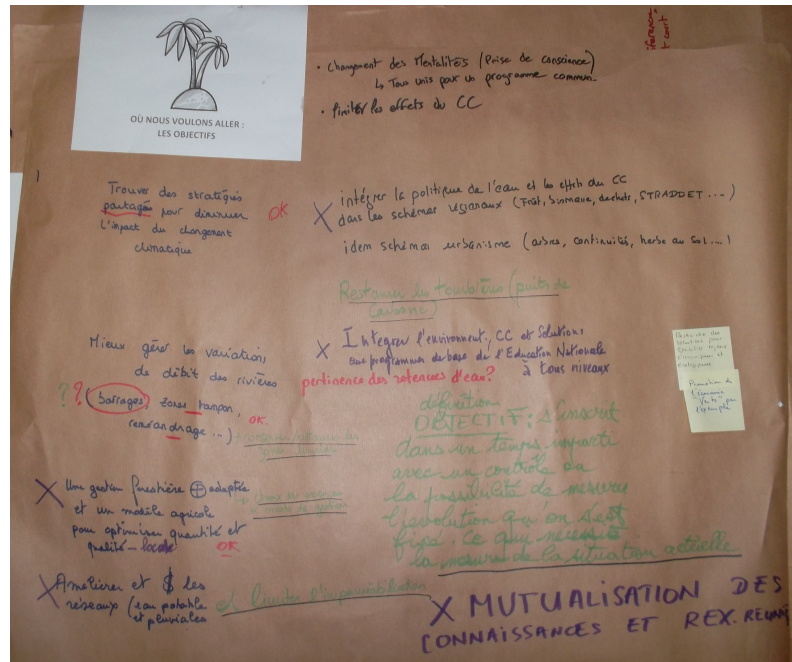 OÙ NOUS VOULONS ALLER :
LES OBJECTIFS
• Changement des Mentalités (Prise de conscience)
↳ Tous unis pour un programme commun.
• limiter les effets du CC
Trouver des stratégies
partagées pour diminuer
l'impact du changement
climatique
OK
X intégrer la politique de l'eau et les effets du CC
dans les schémas régionaux (Forêt, biomasse, déchets, STRADDET ...)
idem schémas urbanisme (arbres, continuités, herbe au sol ...)
Restaurer les tourbières (puits de
carbone)
Mieux gérer les variations
de débit des rivières
?? (barrages, zones tampon,
remeandrage ...) OK.
X Integrer l'environment, CC et Solutions
aux programmes de base de l'Education Nationale
à tous niveaux
pertinence des retenues d'eau?
définition
OBJECTIF : s'inscrit
dans un temps imparti
avec un contrôle ou
la possibilité de mesurer
l'évolution qu'on s'est
fixé. Ce qui nécessite
la mesure de la situation actuelle
X Une gestion forestière ⊕ adaptée
et un modèle agricole
pour optimiser quantité et
qualité - locale OK
X Améliorer et $ les
réseaux (eau potable
et pluviales
et limiter l'imperméabilisation
Promotion de
l'économie
"verte" par
l'exemple
X MUTUALISATION DES
CONNAISSANCES ET REX. REUNI